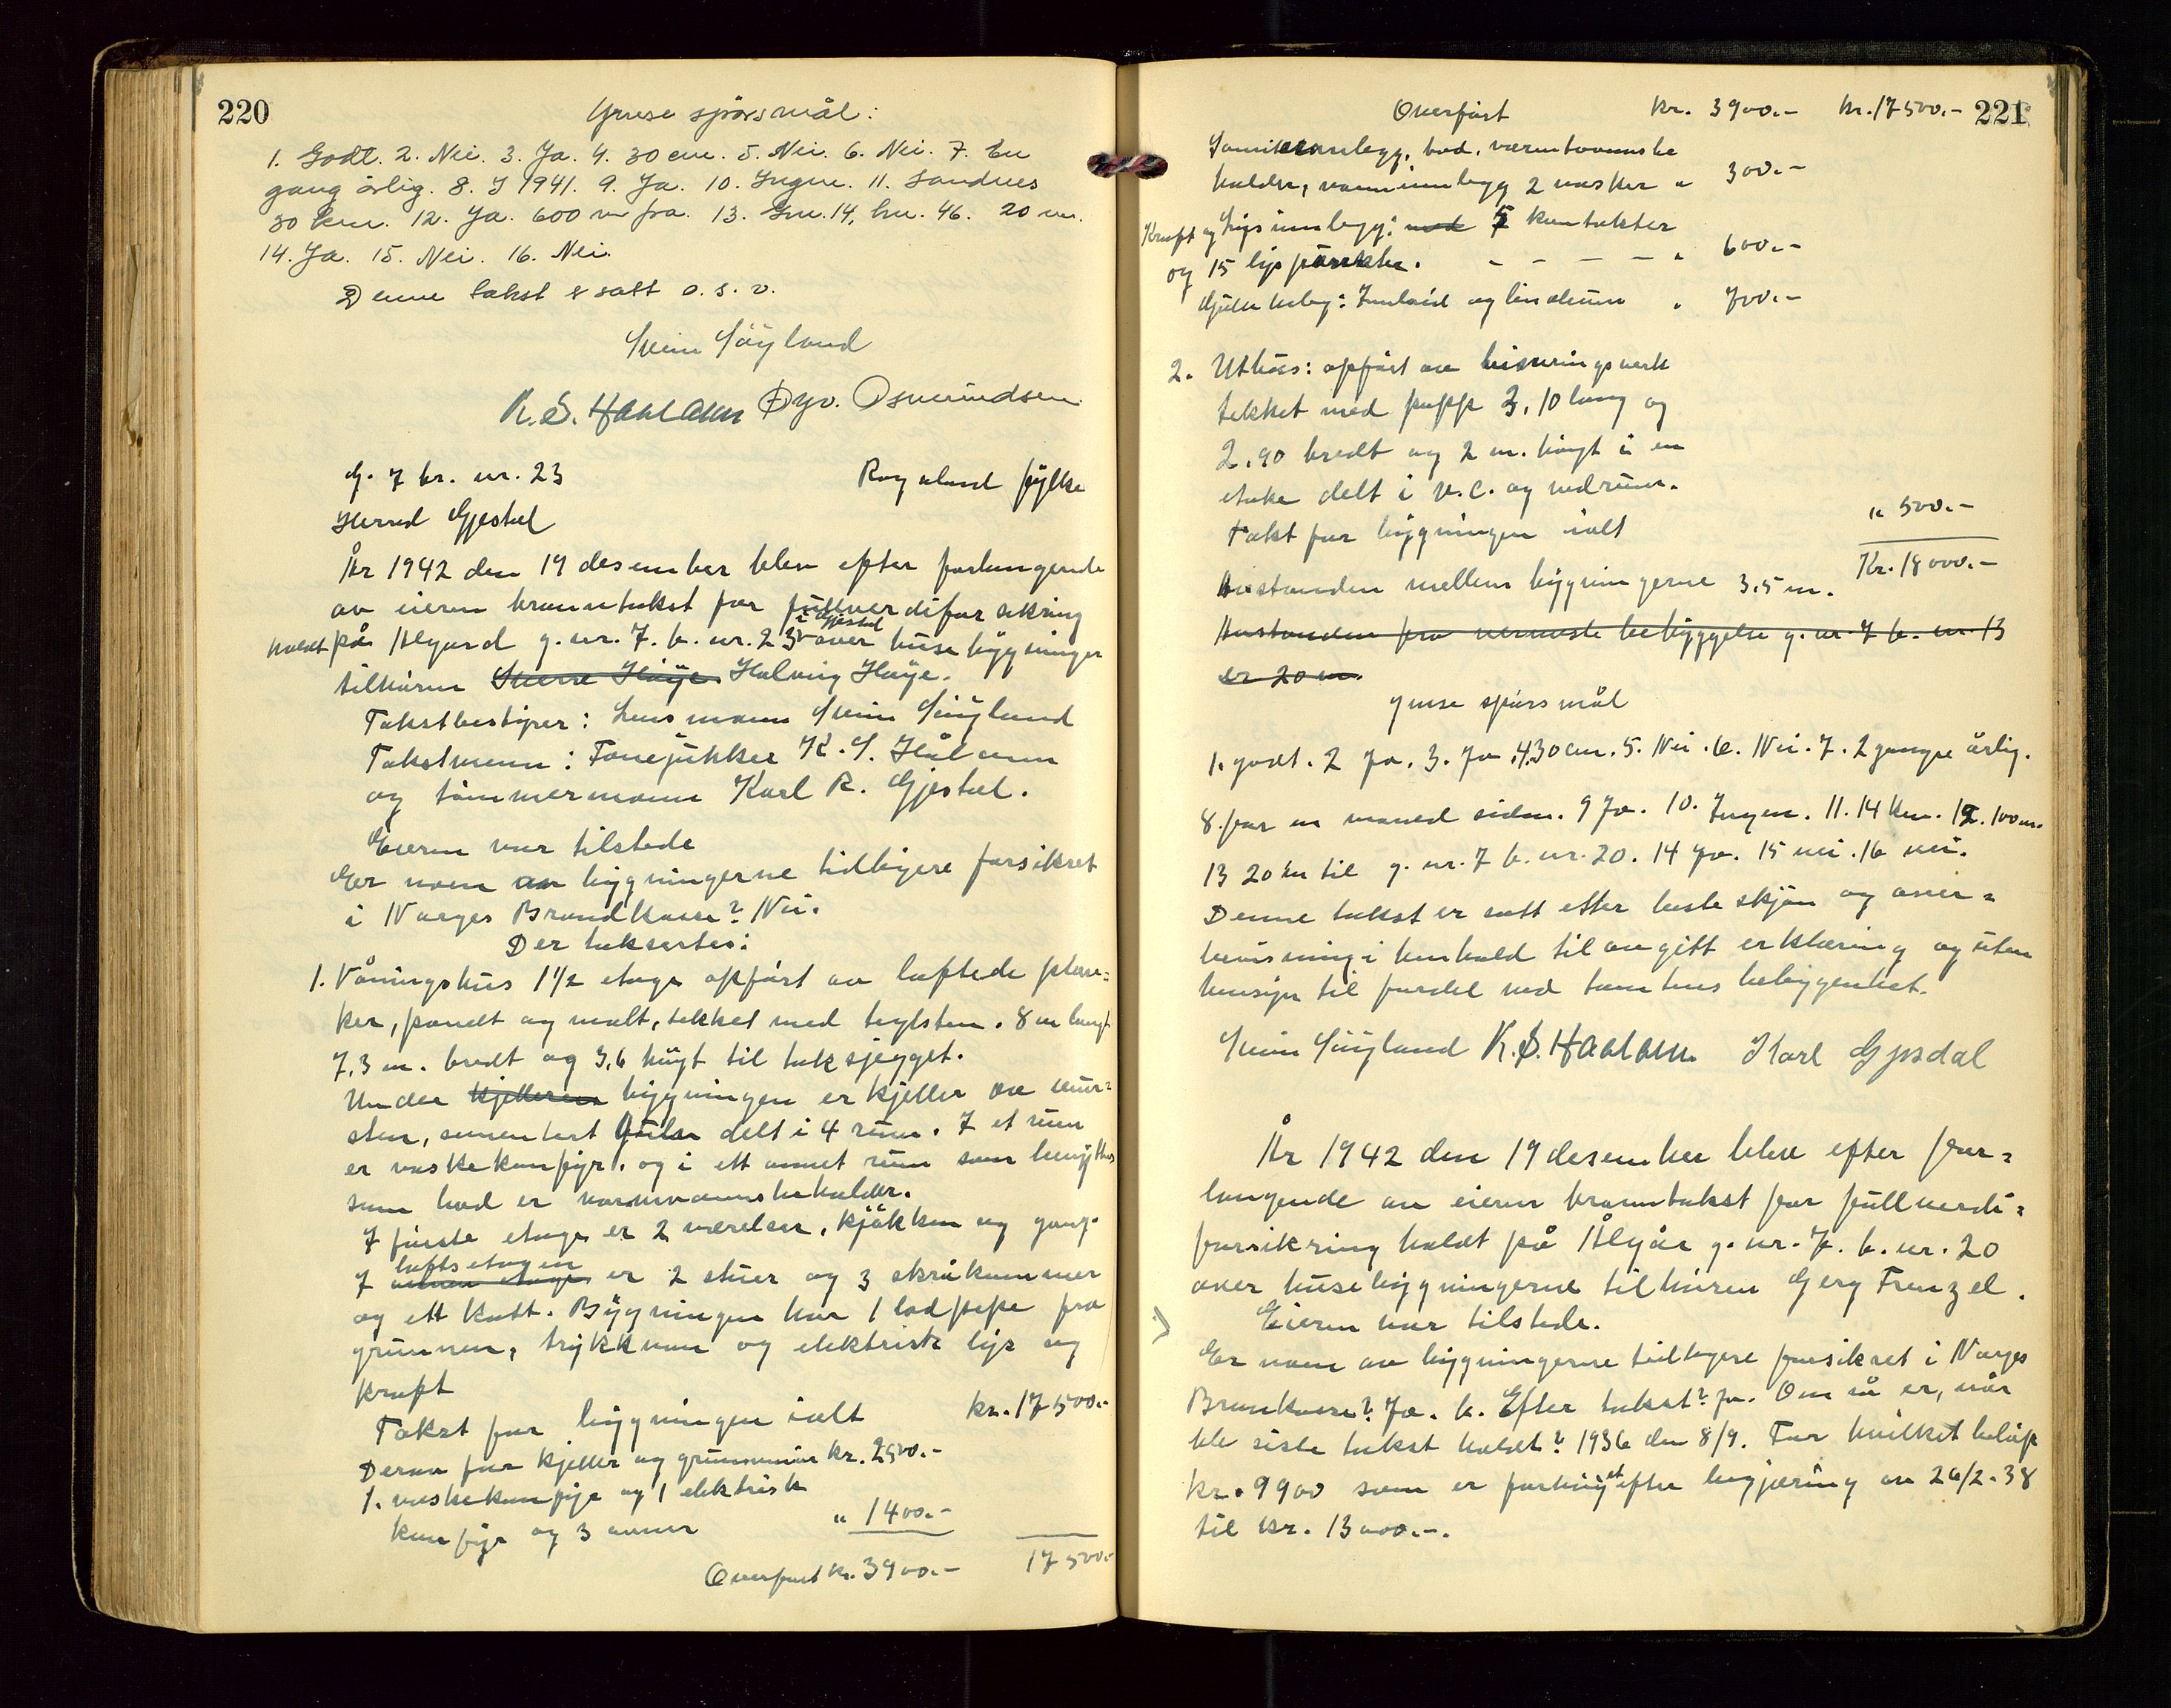 220
Ymse spörsmål:
1. Godt. 2. Nei. 3. Ja. 4. 30 cm. 5. Nei. 6. Nei. 7. En
gang årlig. 8. I 1941. 9. Ja. 10. Ingen. 11. Sandnes
30 km. 12. Ja. 600 m fra. 13. Gnr. 14, bnr. 46. 20 m.
14. Ja. 15. Nei. 16. Nei.
Denne takst er satt o. s. v.
Svein Söyland
K. S. Haaland Öyv. Osmundsen
G. 7 br. nr. 23 Rogaland fylke
Herred Gjestal
År 1942 den 19 desember blev efter forlangende
av eieren branntakst for fullverdiforsikring
holdt på Ålgård g. nr. 7. b. nr. 23 i Gjestal over husebygninger
tilhören Sverre Höye. Halvig Höye.
Takstbestyrer: Lensmann Svein Söyland
Takstmenn: Tonejukker K. S. Håland
og tömmermann Karl R. Gjestal.
Eieren var tilstede
Er noen av bygningerne tidligere forsikret
i Norges Brandkasse? Nei.
Der taksertes:
1. Våningshus 1 1/2 etage opfört av laftede plan=
ker, panelt og malt, tekket med teglsten. 8 m langt
7,3 m. bredt og 3,6 högt til takskjegget.
Under kjelleren bygningen er kjeller av mur=
sten, sementert gulv delt i 4 rum. I et rum
er vaskekomfyr, og i ett annet rum som benyttes
som bad er varmvannsbeholder.
I förste etage er 2 værelser, kjökken og gang.
I annen etage loftsetagen er 2 stuer og 3 skråkammer
og ett kott. Bygningen har 1 lodpipe fra
grunnen, trykkvann og elektrisk lys og
kraft
Takst for bygningen ialt kr. 17500.-
Derav for kjeller og grunnmur kr. 2500.-
1. vaskekomfyr og 1 elektrisk
komfyr og 3 ovner " 1400.-
Overfört kr. 3900.- 17500.-
221
Overfört kr. 3900.- kr. 17500.-
Sanitæranlegg, bad, varmtvannsbe
holder, vanninnlegg 2 vasker " 300.-
Kraft og lysinnlegg: med 5 kontakter
og 15 lyspunkter. - - - - " 600.-
Gulvbeleg: Innlaid og linoleum " 700.-
2. Uthus: opfört av bindingsverk
tekket med papp 3,10 lang og
2,90 bredt og 2 m. högt i en
etake delt i v.c. og vedrum.
Takst for bygningen ialt " 500.-
Kr. 18000.-
Avstanden mellem bygningerne 3,5 m.
Avstanden fra nermeste bebyggelse g. nr. 7 b. nr. 13
er 20 m.
ymse spörsmål
1. godt. 2 ja. 3. ja. 4. 30 cm. 5. Nei. 6. Nei. 7. 2 gange årlig.
8. for en maned siden. 9 Ja. 10. Ingen. 11. 14 km. 12. 100 m.
13 20 m til g. nr. 7 b. nr. 20. 14 ja. 15 nei. 16 nei.
Denne takst er satt etter beste skjön og over=
bevisning i henhold til avgitt erklæring og uten
hensyn til fordel ved tomtens beliggenhet.
Svein Söyland K. S. Haaland Karl Gjesdal
År 1942 den 19 desember blev efter for=
langende av eieren branntakst for fullverdi=
forsikring holdt på Ålgår g. nr. 7. b. nr. 20
over husebygningerne tilhören Gerg Frenzel.
Eieren var tilstede.
Er noen av bygningerne tidligere forsikret i Norges
Brankasse? Ja. b. Efter takst? ja. Om så er, når
ble siste takst holdt? 1936 den 8/9. For hvilket belöp
kr. 9900 som er forhöyet efter begjæring av 26/2-38
til kr. 13000.-.